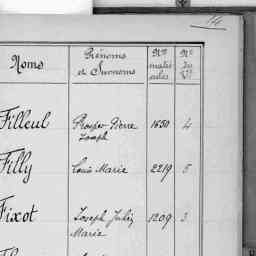 14
Noms
Prénoms
et Surnoms
Nos
matri
cules
Nos
du
Filleul
Prosper Pierre
Joseph
1650
4
Filly
Louis Marie
2219
5
Fixot
Joseph Julien
Marie
1209
3